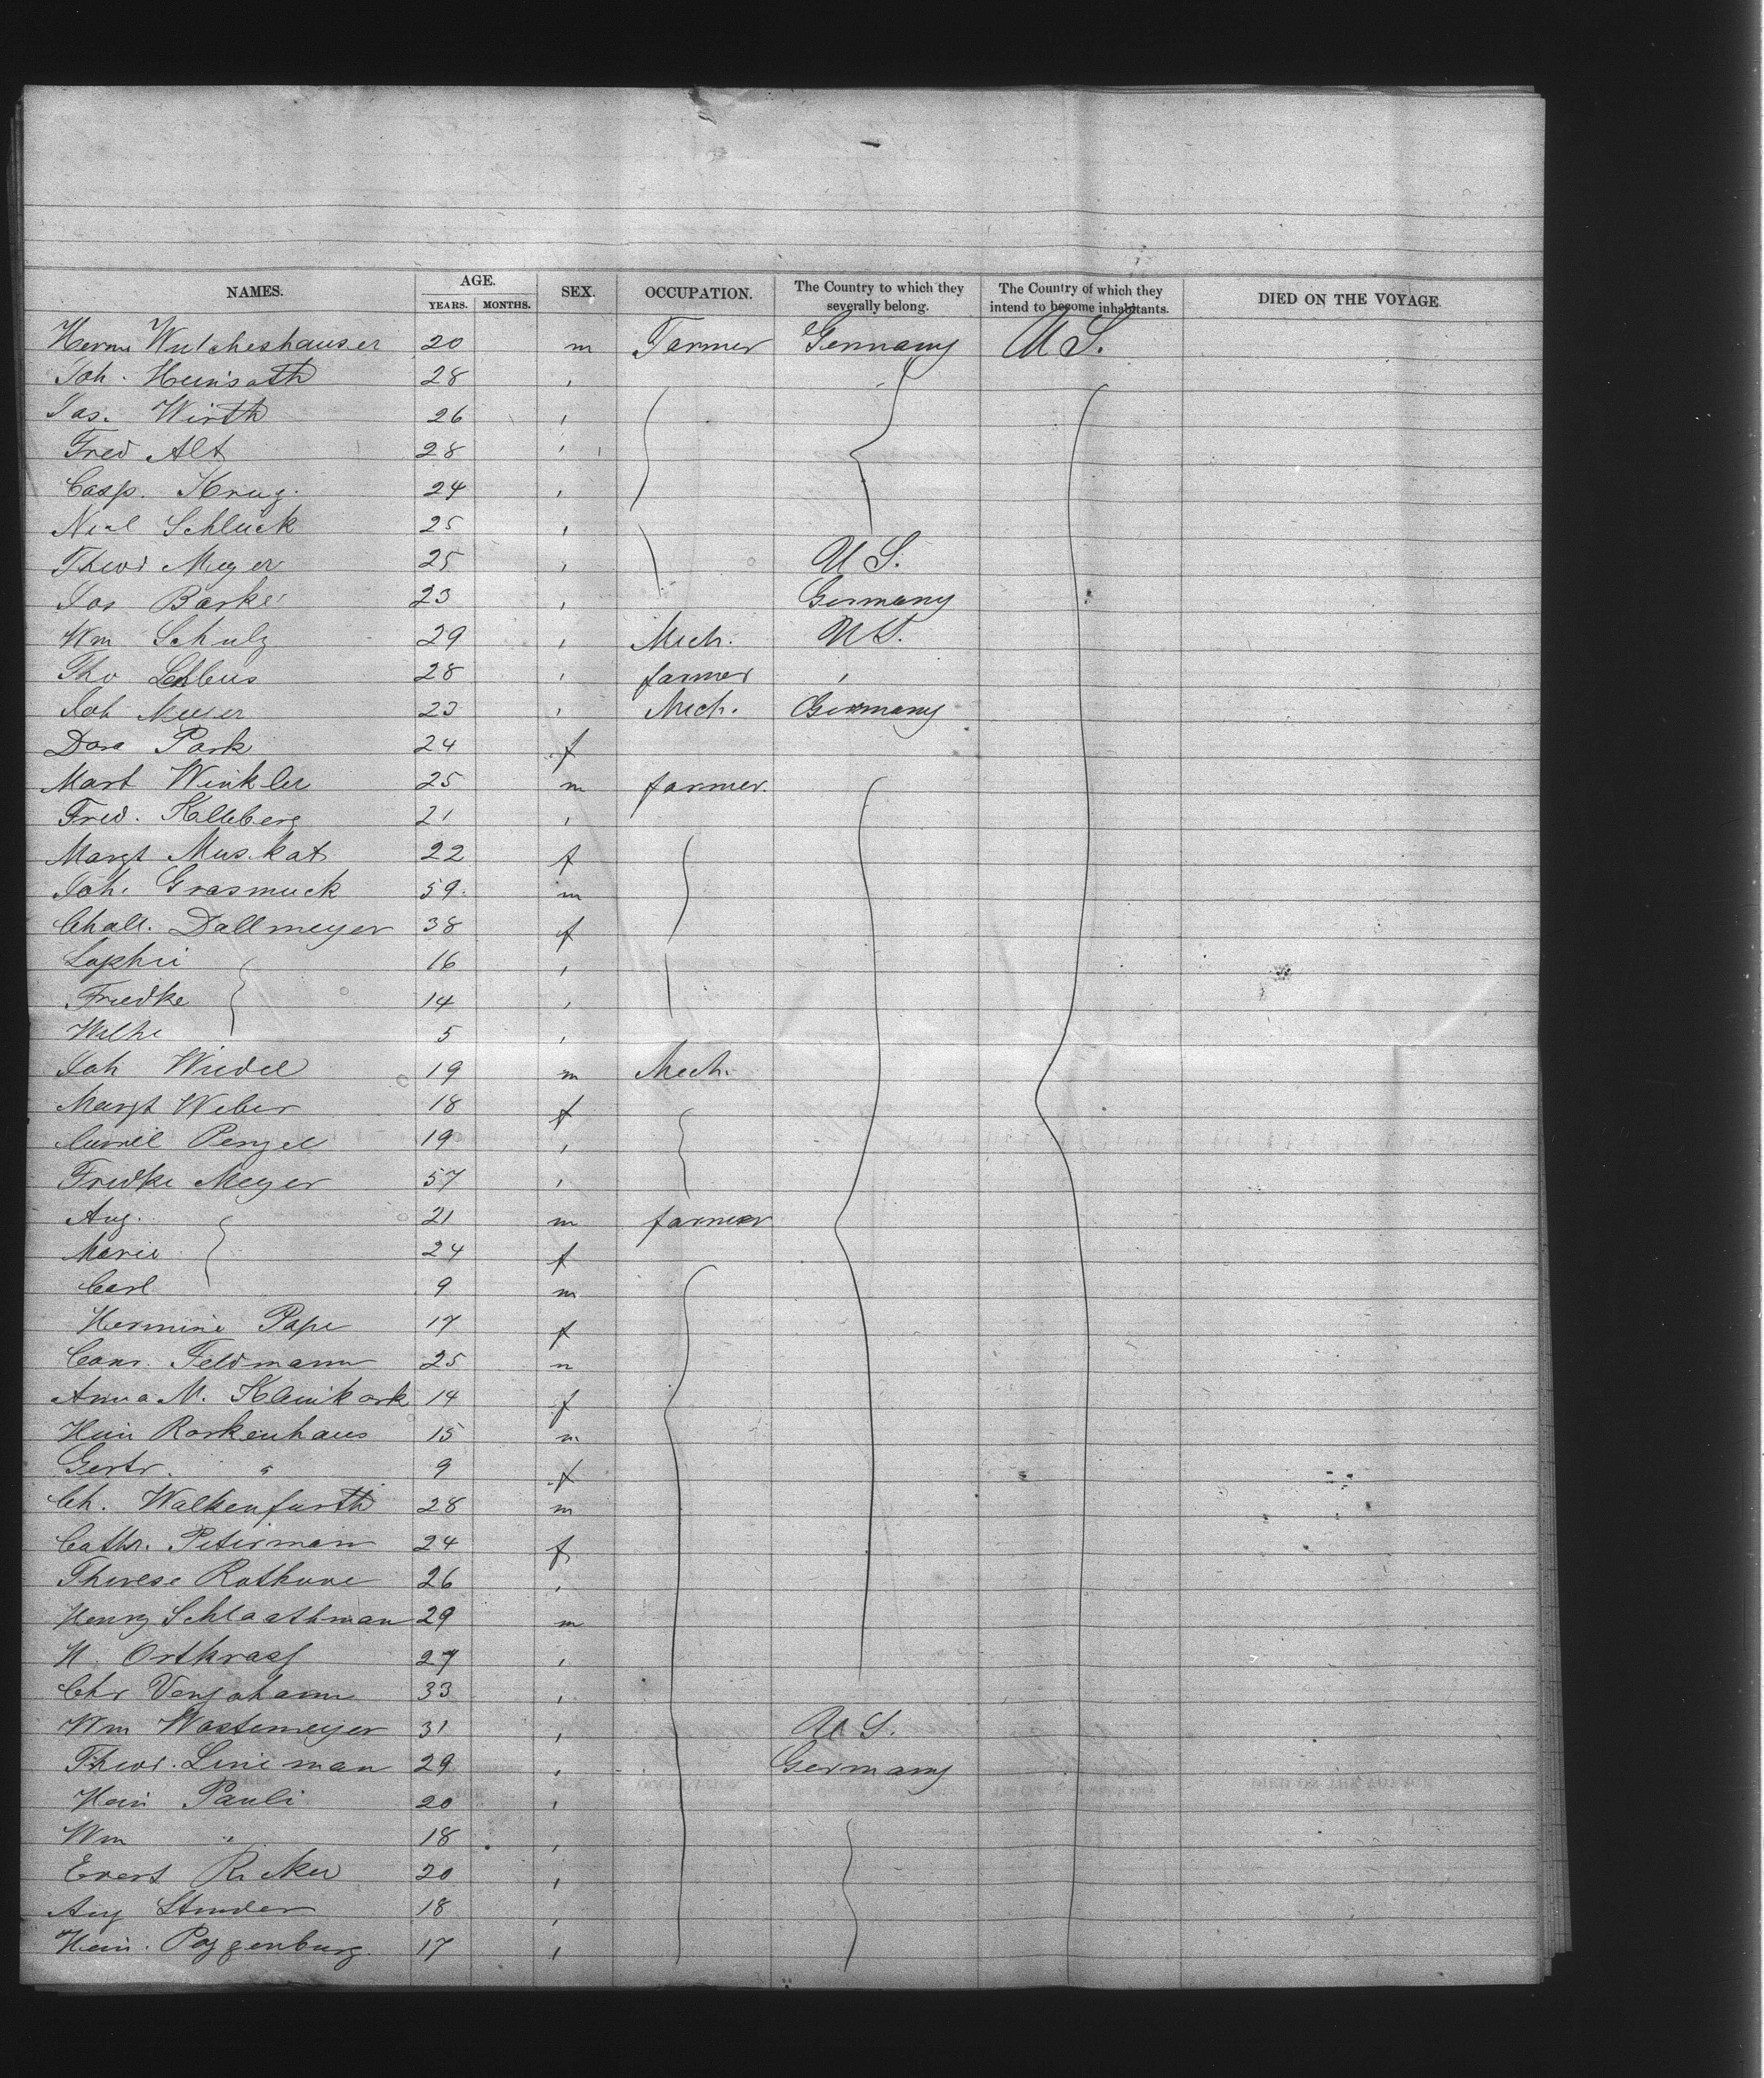 NAMES. AGE. SEX. OCCUPATION. The Country to which they severally belong. The Country of which they intend to become inhabitants. DIED ON THE VOYAGE.
YEARS. MONTHS.
Herm Wulcheshauser 20 m Farmer Germany U S.
Joh. Heinsoth 28 ,
Jas. Wirth 26 ,
Fred Alt 28 ,
Casp. Krug. 24 ,
Nicl Schluck 25 ,
Theod Meyer 25 , U S.
Jos Barke 23 , Germany
Wm Schulz 29 , Mech. U S.
Tho 28 , farmer ,
Joh Meyer 23 , Mech. Germany
Dora Park 24 f
Mart Winkler 25 m farmer.
Fred. Kelleberg 21 ,
Margt Muskat 22 f
Joh. Grasmuck 59 m
Chall. Dallmeyer 38 f
Sophie 16 ,
Friedke 14 ,
Wilhe 5 ,
Joh Wiedel 19 m Mech.
Margt Weber 18 f
Penzel 19 ,
Fredke Meyer 57 ,
Aug. 21 m farmer
Marie 24 f
Carl 9 m
Hermine Pape 17 f
Conr. Feldmann 25 m
Anna M. Kleinkork 14 f
Hein Rorkenhaus 15 m
Gertr. " 9 f
Ch. Walkenfurth 28 m
Cathr. Peterman 24 f
Therese Rothune 26 ,
Henry Schlaathman 29 m
H. Ortkrass 27 ,
Chr Venjohann 33 ,
Wm Wostemeyer 31 , U S.
Theod. Lineman 29 , Germany
Hein Pauli 20 ,
Wm " 18 ,
Evert Ricker 20 ,
Aug Studer 18 ,
Hein. Poggenburg. 17 ,